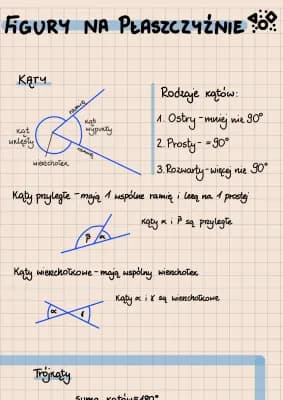 FIGURY NA PŁASZCZYŹNIE
KĄTY
ramię
kąt
wypukły
kąt
wklęsły
ramię
wierzchołek
Rodzaje kątów:
1. Ostry - mniej niż 90°
2. Prosty - = 90°
3. Rozwarty - więcej niż 90°
Kąty przyległe - mają 1 wspólne ramię i leżą na 1 prostej
β α
Kąty α i β są przyległe
Kąty wierzchołkowe - mają wspólny wierzchołek
Kąty α i γ są wierzchołkowe
α γ
Trójkąty
Suma kątów = 180°